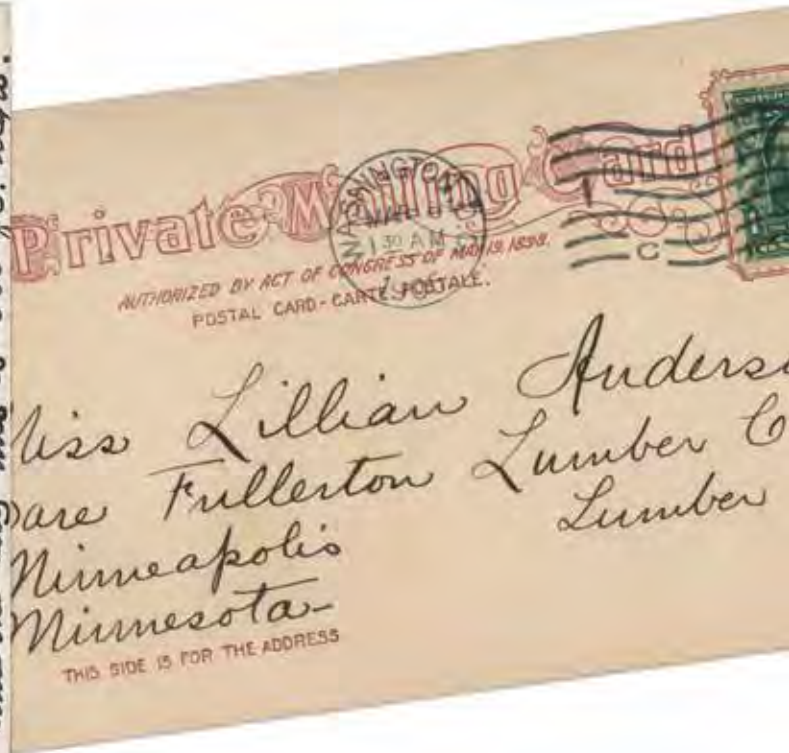 Private Mailing Card
WASHINGTON
1 30 AM
AUTHORIZED BY ACT OF CONGRESS OF MAY 19, 1898.
POSTAL CARD-CARTE POSTALE.
C
iss Lillian Anders
are Fullerton Lumber C
Lumber
Minneapolis
Minnesota
THIS SIDE IS FOR THE ADDRESS